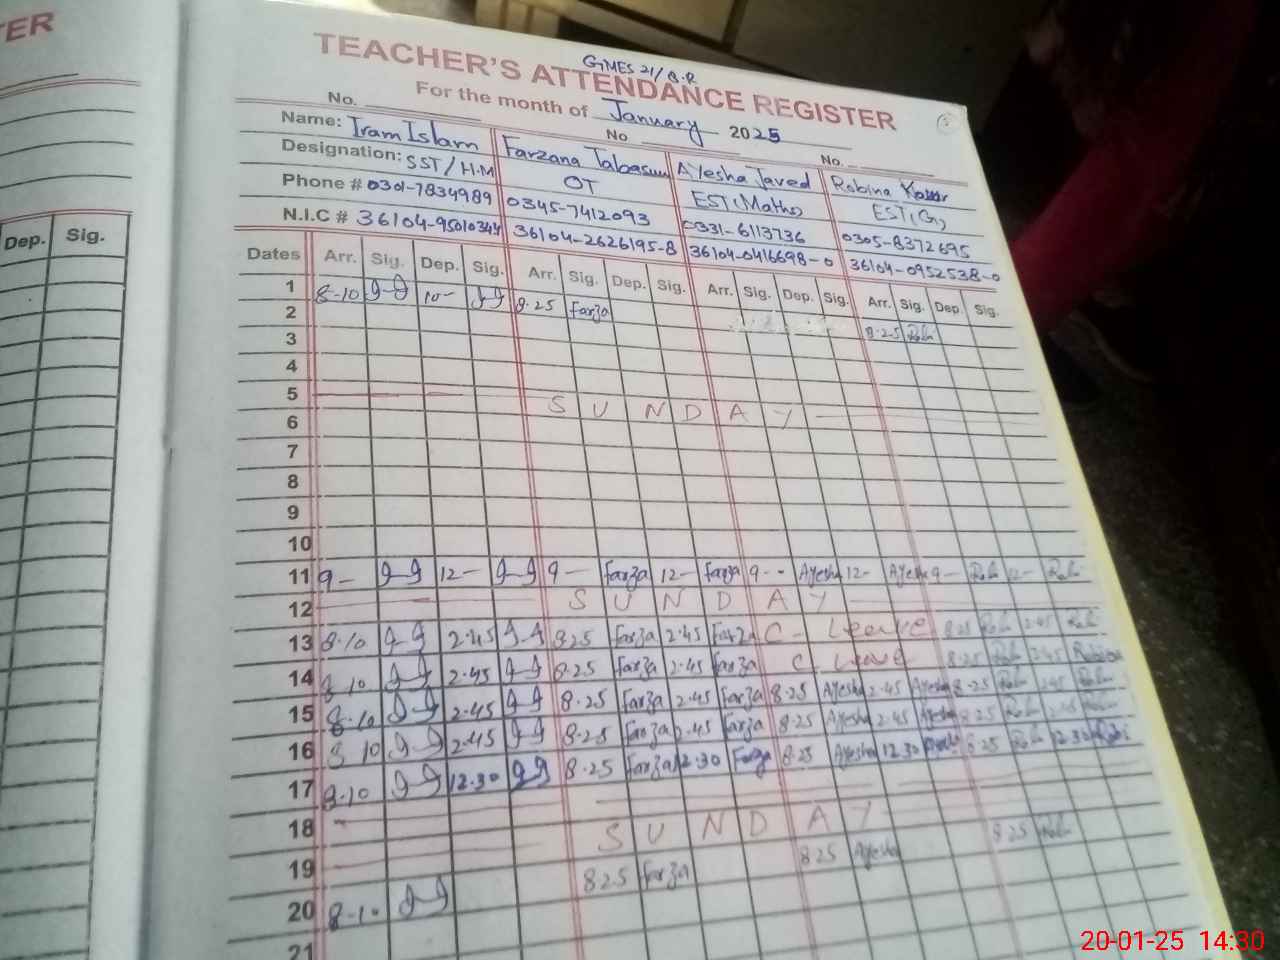 TER
GMES 21/B.R
TEACHER'S ATTENDANCE REGISTER
For the month of January 2025
No. No No.
Name: Iram Islam Farzana Tabasum Ayesha Javed Robina Kosar
Designation: SST/H.M OT EST(Maths) EST(G)
Phone # 0301-7834989 0345-7412093 0331-6113736 0305-8372695
N.I.C # 36104-9501034 36104-2626195-8 36104-0416698-0 36104-0952538-0
Dep. Sig.
Dates Arr. Sig. Dep. Sig. Arr. Sig. Dep. Sig. Arr. Sig. Dep. Sig. Arr. Sig. Dep. Sig.
1 8-10 10- 8.25 Farza 8.25
2
3
4
5 SUNDAY
6
7
8
9
10
11 9- 12- 9- Farza 12- Farza 9- Ayesha 12- Ayesha 9- 12-
12 SUNDAY
13 8.10 2.45 8.25 Farza 2.45 Farza C- Leave 8.25 2.45
14 8.10 2.45 8.25 Farza 2.45 Farza C- Leave 8.25 2.45 Robina
15 8.10 2.45 8.25 Farza 2.45 Farza 8.25 Ayesha 2.45 Ayesha 8.25 2.45
16 8.10 2.45 8.25 Farza 2.45 Farza 8.25 Ayesha 2.45 Ayesha 8.25 2.45
17 8.10 12.30 8.25 Farza 12.30 Farza 8.25 Ayesha 12.30 8.25 12.30
18
19 SUNDAY
20 8-10 8.25 Farza 8.25 Ayesha 8.25
21
20-01-25 14:30